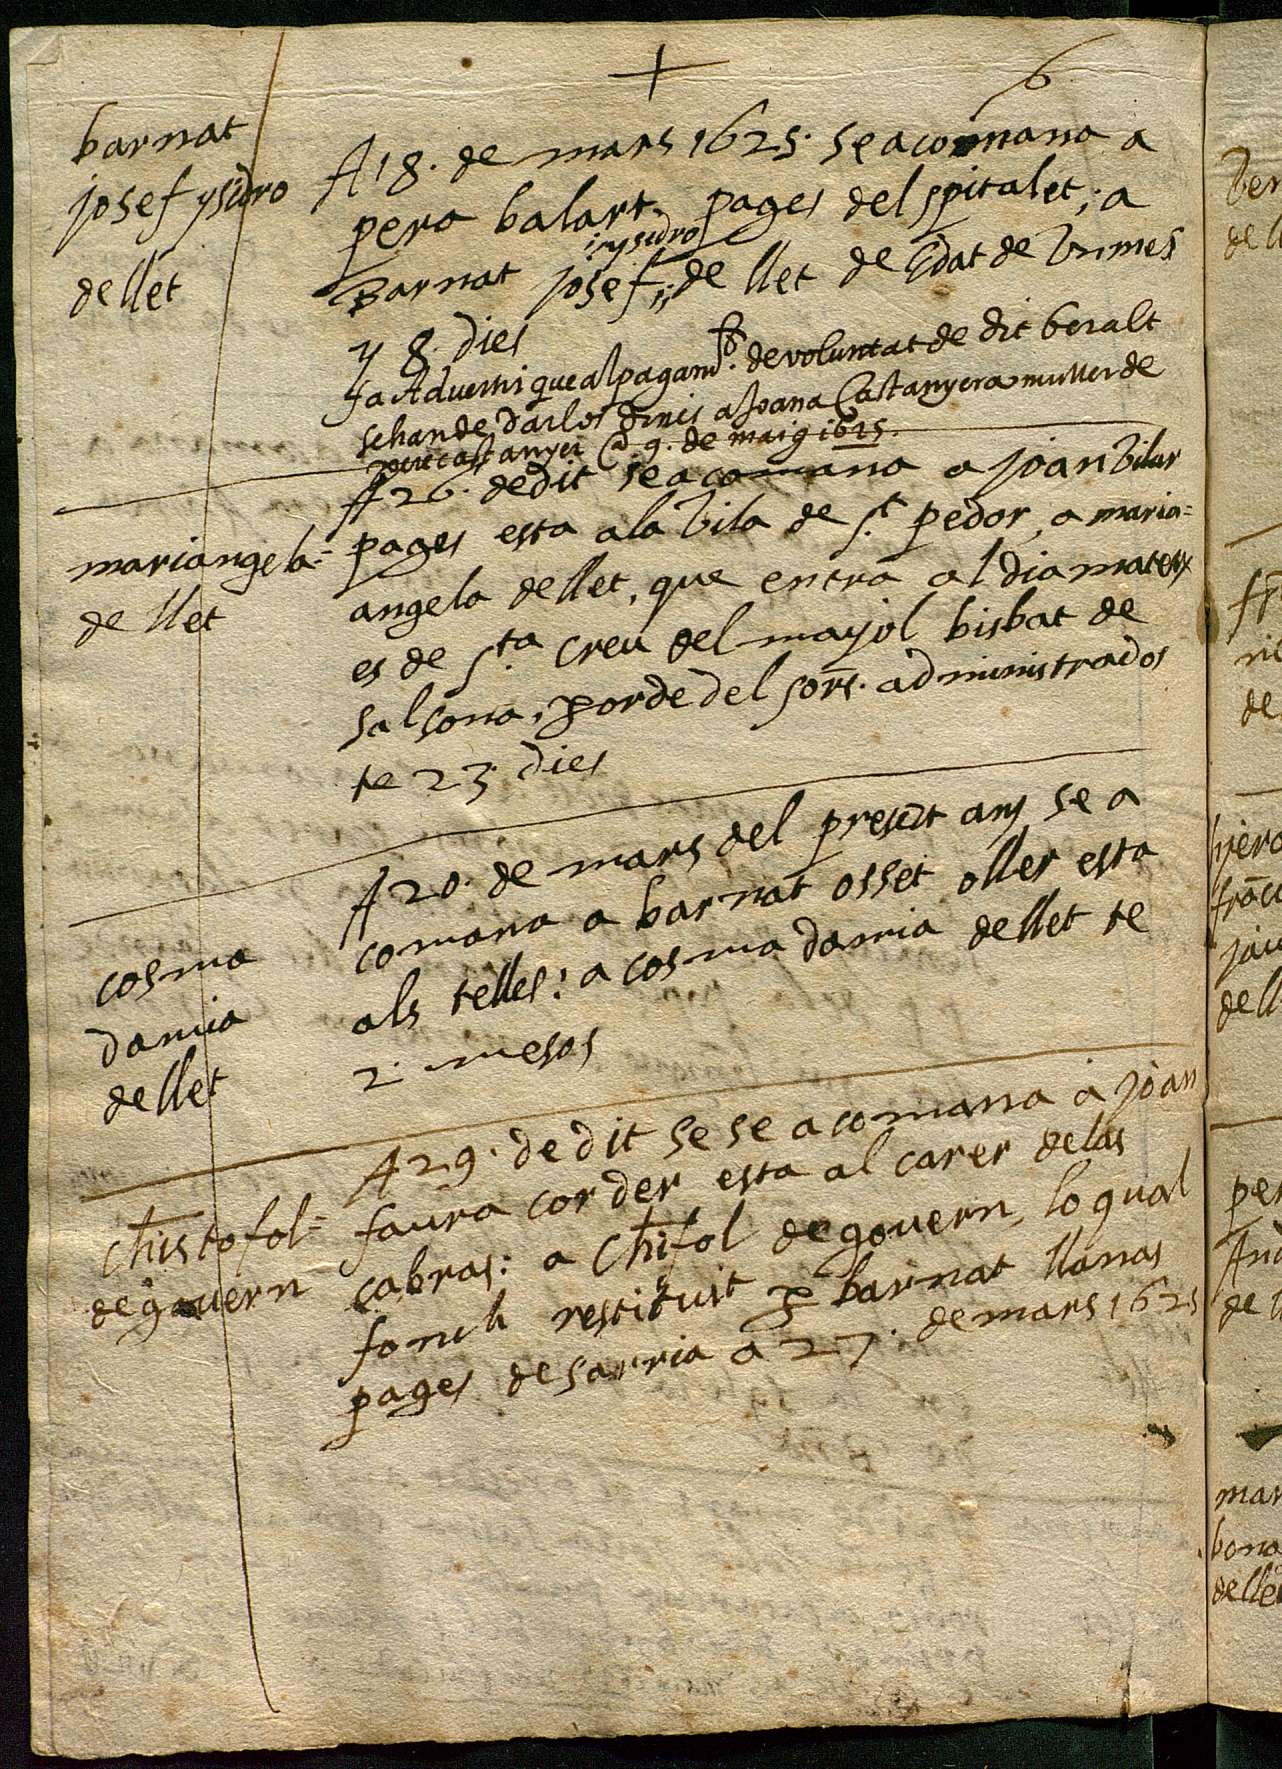 6
barnat
josef ysidro
de llet
A 18. de mars 1625. se acomana a
pera balart, pages del spitalet; a
Barnat josef i ysidro de llet de Edat de Vn mes
y 8. dies
fa Advertir que al pagam.t de voluntat de dit beralt
se han de dar los dines a Joana Castanyera muller de
pere castanyer @ 9. de maig 1625.
mariangela=
de llet
A 26. de dit se acomana a joan Vilar
pages esta a la Vila de S.t pedor, a maria=
angela de llet, que entrà al dia mateix
es de S.ta Creu del mayol bisbat de
salsona, p orde del sors. administrados
te 23. dies
cosma
damia
de llet
A 20. de mars del present any se a
comana a barnat osset oller esta
als telles: a cosma damia de llet te
2. mesos
Christofol=
de govern
A 29. de dit se se acomana a joan
faura corder esta al carer de las
cabras: a Chifol de govern, lo qual
fonch restituit p barnat llanas
pages de sarria a 27. de mars 1625